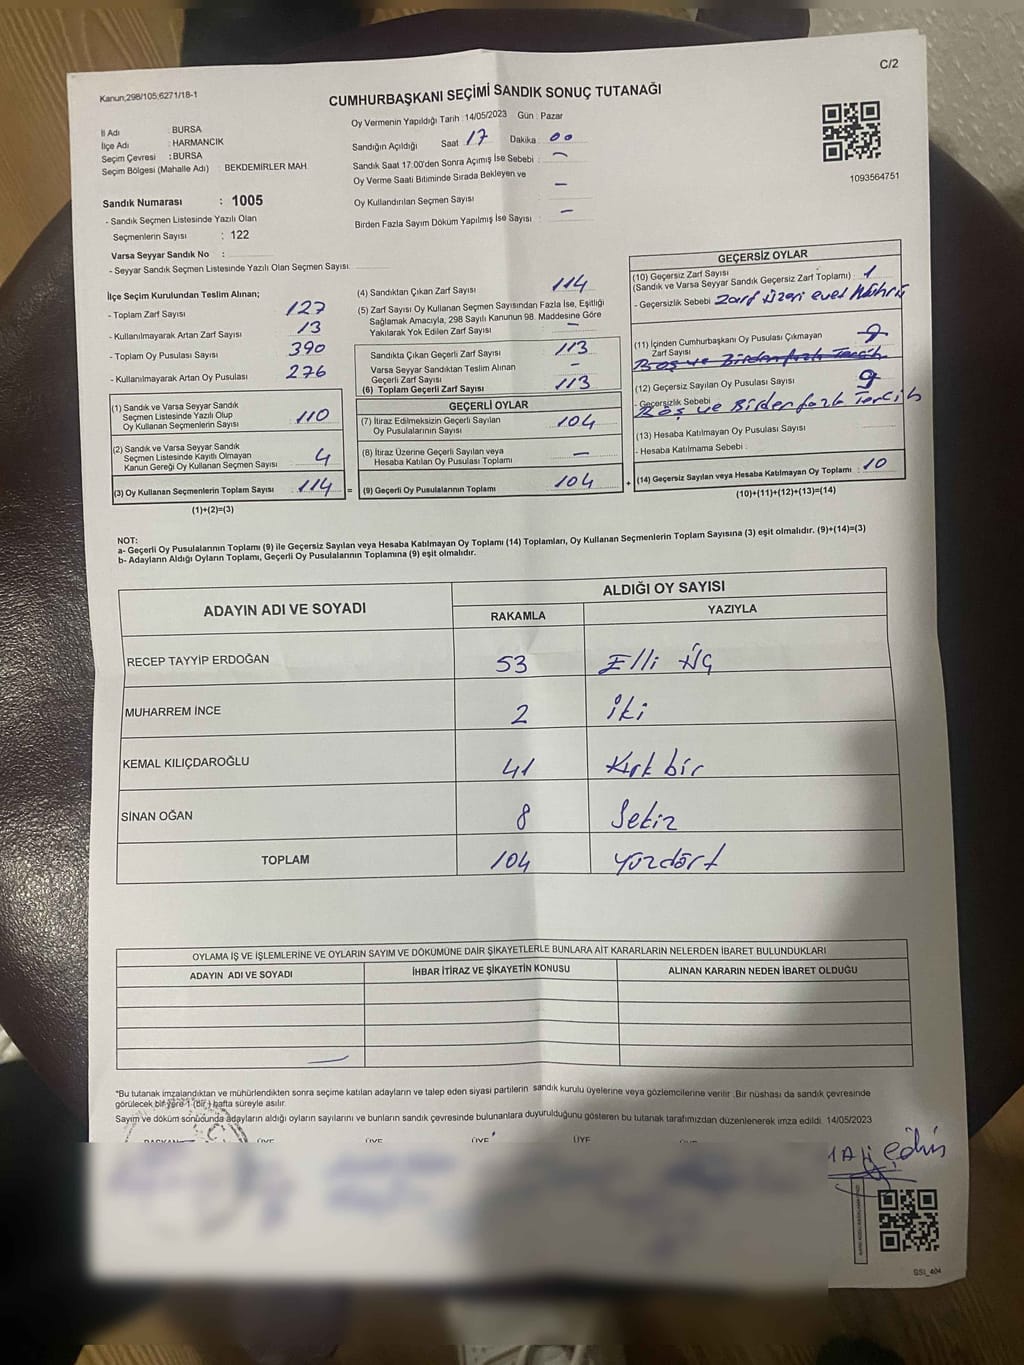 C/2
Kanun;298/105;6271/18-1
CUMHURBAŞKANI SEÇİMİ SANDIK SONUÇ TUTANAĞI
İl Adı : BURSA
İlçe Adı : HARMANCIK
Seçim Çevresi : BURSA
Seçim Bölgesi (Mahalle Adı) : BEKDEMİRLER MAH.
Sandık Numarası : 1005
- Sandık Seçmen Listesinde Yazılı Olan
Seçmenlerin Sayısı : 122
Varsa Seyyar Sandık No :
- Seyyar Sandık Seçmen Listesinde Yazılı Olan Seçmen Sayısı
Oy Vermenin Yapıldığı Tarih : 14/05/2023 Gün : Pazar
Sandığın Açıldığı Saat 17 Dakika : 00
Sandık Saat 17.00'den Sonra Açımış İse Sebebi : —
Oy Verme Saati Bitiminde Sırada Bekleyen ve
Oy Kullandırılan Seçmen Sayısı —
Birden Fazla Sayım Döküm Yapılmış İse Sayısı : —
1093564751
İlçe Seçim Kurulundan Teslim Alınan;
- Toplam Zarf Sayısı : 127
- Kullanılmayarak Artan Zarf Sayısı : 13
- Toplam Oy Pusulası Sayısı : 390
- Kullanılmayarak Artan Oy Pusulası : 276
(1) Sandık ve Varsa Seyyar Sandık
Seçmen Listesinde Yazılı Olup
Oy Kullanan Seçmenlerin Sayısı : 110
(2) Sandık ve Varsa Seyyar Sandık
Seçmen Listesinde Kayıtlı Olmayan
Kanun Gereği Oy Kullanan Seçmen Sayısı : 4
(3) Oy Kullanan Seçmenlerin Toplam Sayısı : 114
(1)+(2)=(3)
(4) Sandıktan Çıkan Zarf Sayısı : 114
(5) Zarf Sayısı Oy Kullanan Seçmen Sayısından Fazla İse, Eşitliği
Sağlamak Amacıyla, 298 Sayılı Kanunun 98. Maddesine Göre
Yakılarak Yok Edilen Zarf Sayısı : —
Sandıkta Çıkan Geçerli Zarf Sayısı : 113
Varsa Seyyar Sandıktan Teslim Alınan
Geçerli Zarf Sayısı : —
(6) Toplam Geçerli Zarf Sayısı : 113
GEÇERLİ OYLAR
(7) İtiraz Edilmeksizin Geçerli Sayılan
Oy Pusulalarının Sayısı : 104
(8) İtiraz Üzerine Geçerli Sayılan veya
Hesaba Katılan Oy Pusulası Toplamı : —
= (9) Geçerli Oy Pusulalarının Toplamı : 104
GEÇERSİZ OYLAR
(10) Geçersiz Zarf Sayısı
(Sandık ve Varsa Seyyar Sandık Geçersiz Zarf Toplamı) : 1
- Geçersizlik Sebebi : Zarf Üzeri evet Mührü
(11) İçinden Cumhurbaşkanı Oy Pusulası Çıkmayan
Zarf Sayısı : 9
Boş ve Birden fazla Tercih
(12) Geçersiz Sayılan Oy Pusulası Sayısı : 9
- Geçersizlik Sebebi :
Boş ve Birden fazla Tercih
(13) Hesaba Katılmayan Oy Pusulası Sayısı :
- Hesaba Katılmama Sebebi :
+ (14) Geçersiz Sayılan veya Hesaba Katılmayan Oy Toplamı : 10
(10)+(11)+(12)+(13)=(14)
NOT:
a- Geçerli Oy Pusulalarının Toplamı (9) ile Geçersiz Sayılan veya Hesaba Katılmayan Oy Toplamı (14) Toplamları, Oy Kullanan Seçmenlerin Toplam Sayısına (3) eşit olmalıdır. (9)+(14)=(3)
b- Adayların Aldığı Oyların Toplamı, Geçerli Oy Pusulalarının Toplamına (9) eşit olmalıdır.
ADAYIN ADI VE SOYADI ALDIĞI OY SAYISI
RAKAMLA YAZIYLA
RECEP TAYYİP ERDOĞAN 53 Elli Üç
MUHARREM İNCE 2 iki
KEMAL KILIÇDAROĞLU 41 Kırk bir
SİNAN OĞAN 8 Sekiz
TOPLAM 104 Yüzdört
OYLAMA İŞ VE İŞLEMLERİNE VE OYLARIN SAYIM VE DÖKÜMÜNE DAİR ŞİKAYETLERLE BUNLARA AİT KARARLARIN NELERDEN İBARET BULUNDUKLARI
ADAYIN ADI VE SOYADI İHBAR İTİRAZ VE ŞİKAYETİN KONUSU ALINAN KARARIN NEDEN İBARET OLDUĞU
*Bu tutanak imzalandıktan ve mühürlendikten sonra seçime katılan adayların ve talep eden siyasi partilerin sandık kurulu üyelerine veya gözlemcilerine verilir .Bir nüshası da sandık çevresinde
görülecek bir yere 1 (bir) hafta süreyle asılır.
Sayım ve döküm sonucunda adayların aldığı oyların sayılarını ve bunların sandık çevresinde bulunanlara duyurulduğunu gösteren bu tutanak tarafımızdan düzenlenerek imza edildi. 14/05/2023
BAŞKAN ÜYE ÜYE ÜYE ÜYE
GSI_404